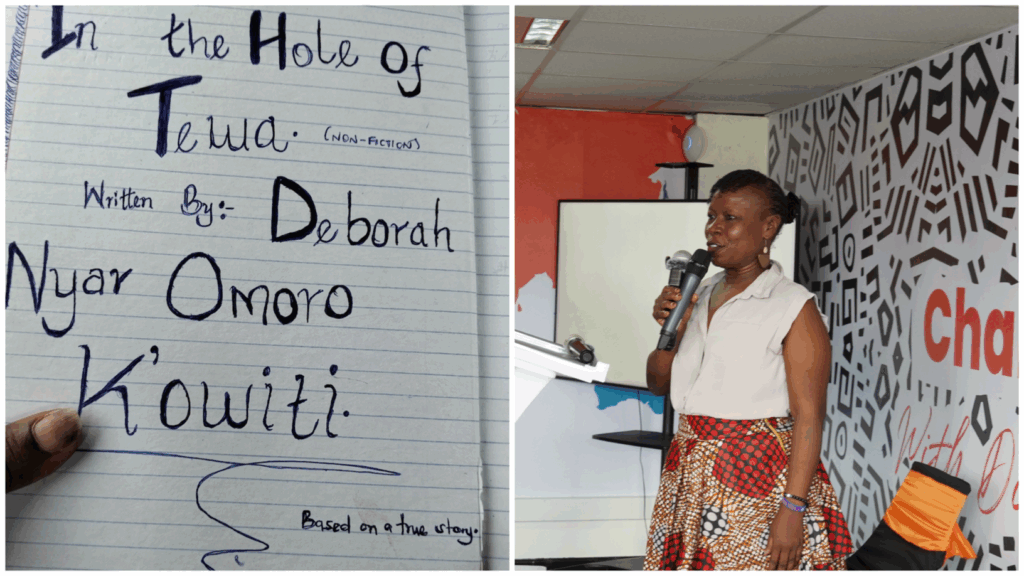 In the Hole of
Tewa. (NON-FICTION)
Written By:- Deborah
Nyar Omoro
K'owiti.
Based on a true story.
Cha
With D